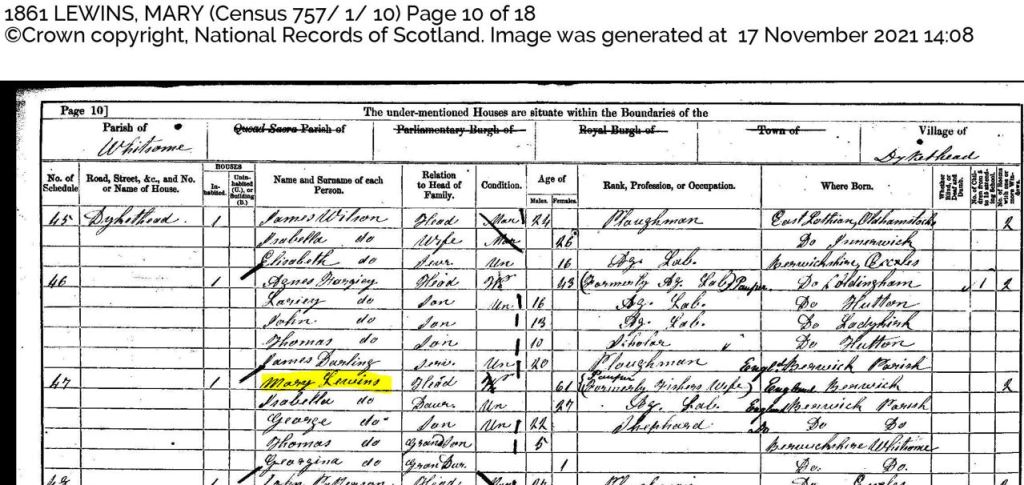 1861 LEWINS, MARY (Census 757/ 1/ 10) Page 10 of 18
©Crown copyright, National Records of Scotland. Image was generated at 17 November 2021 14:08
Page 10] The under-mentioned Houses are situate within the Boundaries of the
Parish of Quoad Sacra Parish of Parliamentary Burgh of Royal Burgh of Town of Village of
Whitsome Dykethead
No. of Schedule Road, Street, &c., and No. or Name of House. HOUSES Inhabited Uninhabited (U.), or Building (B.) Name and Surname of each Person. Relation to Head of Family. Condition. Age of Males. Females. Rank, Profession, or Occupation. Where Born.
45 Dykethead 1 James Wilson Head Mar 24 Ploughman East Lothian, Oldhamstocks 2
Isabella do Wife Mar 26 Do Innerwick
Elisabeth do Serv. Un 16 Ag. Lab. Berwickshire, Eccles
46 1 Agnes Head W 43 (Formerly Ag. Lab) Pauper Do Coldingham 1 2
do Son Un 16 Ag. Lab. Do Hutton
John do Son 13 Ag. Lab. Do Ladykirk
Thomas do Son 10 Scholar Do Hutton
James Darling Serv. Un 20 Ploughman Engld Berwick Parish
47 1 Mary Lewins Head W 61 Pauper (Formerly Fishers Wife) England Berwick 2
Isabella do Daur. Un 27 Ag. Lab. England Berwick Parish
George do Son Un 22 Shephard Do Do Do
Thomas do Grandson 5 Berwickshire Whitsome
Georgina do Gran Daur. 1 Do. Do.
48 John Head Mar